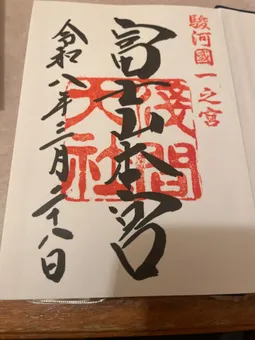 駿河國一之宮
富士山本宮
淺間
大社
令和八年三月二十八日